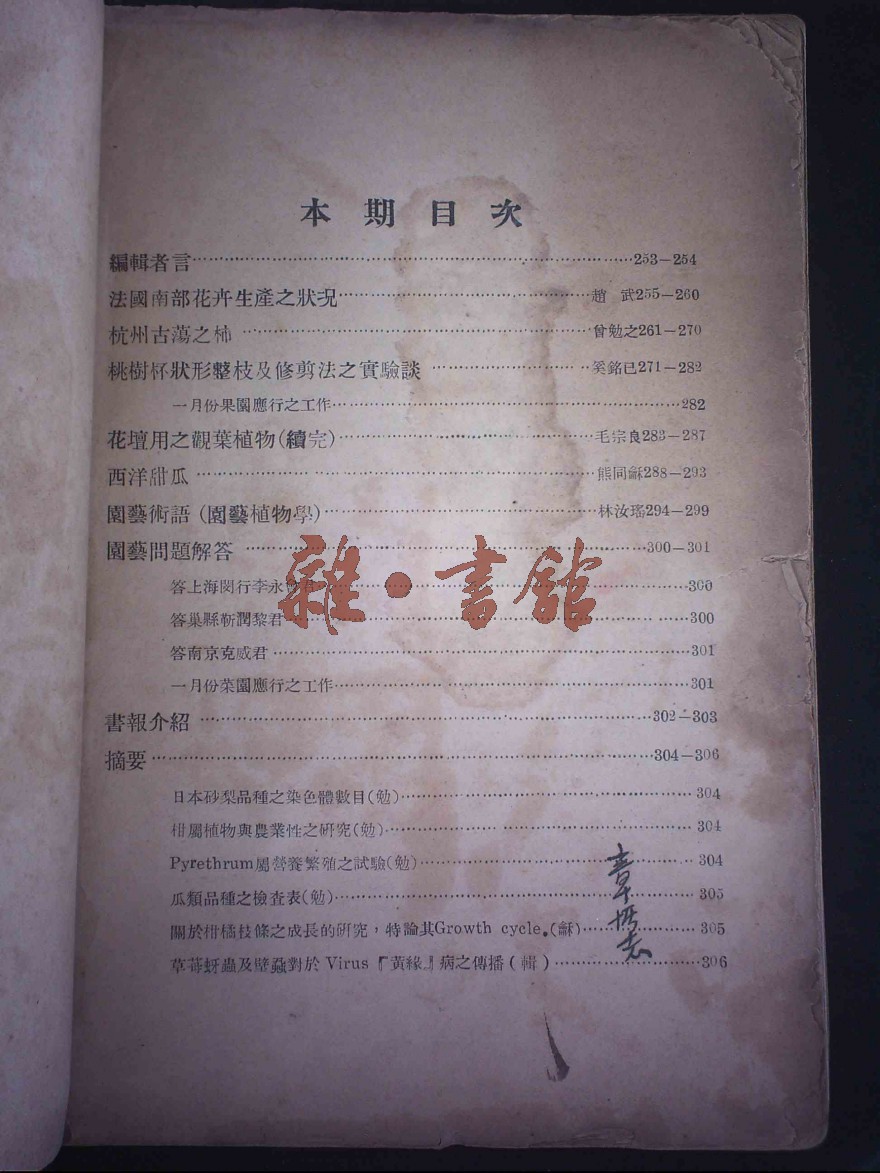 本期目次
編輯者言……253—254
法國南部花卉生產之狀況……趙 武255—260
杭州古蕩之柿……曾勉之261—270
桃樹杯狀形整枝及修剪法之實驗談……奚銘已271—282
一月份果園應行之工作……282
花壇用之觀葉植物(續完)……毛宗良283—287
西洋甜瓜……熊同龢288—293
園藝術語(園藝植物學)……林汝瑤294—299
園藝問題解答……300—301
答上海閔行李永 君……300
答巢縣靳潤黎君……300
答南京克威君……301
一月份菜園應行之工作……301
書報介紹……302—303
摘要……304—306
日本砂梨品種之染色體數目(勉)……304
柑屬植物與農業性之研究(勉)……304
Pyrethrum屬營養繁殖之試驗(勉)……304
瓜類品種之檢查表(勉)……305
關於柑橘枝條之成長的研究，特論其Growth cycle.(龢)……305
草莓蚜蟲及壁蝨對於Virus『黃緣』病之傳播(輯)……306
雜·書館